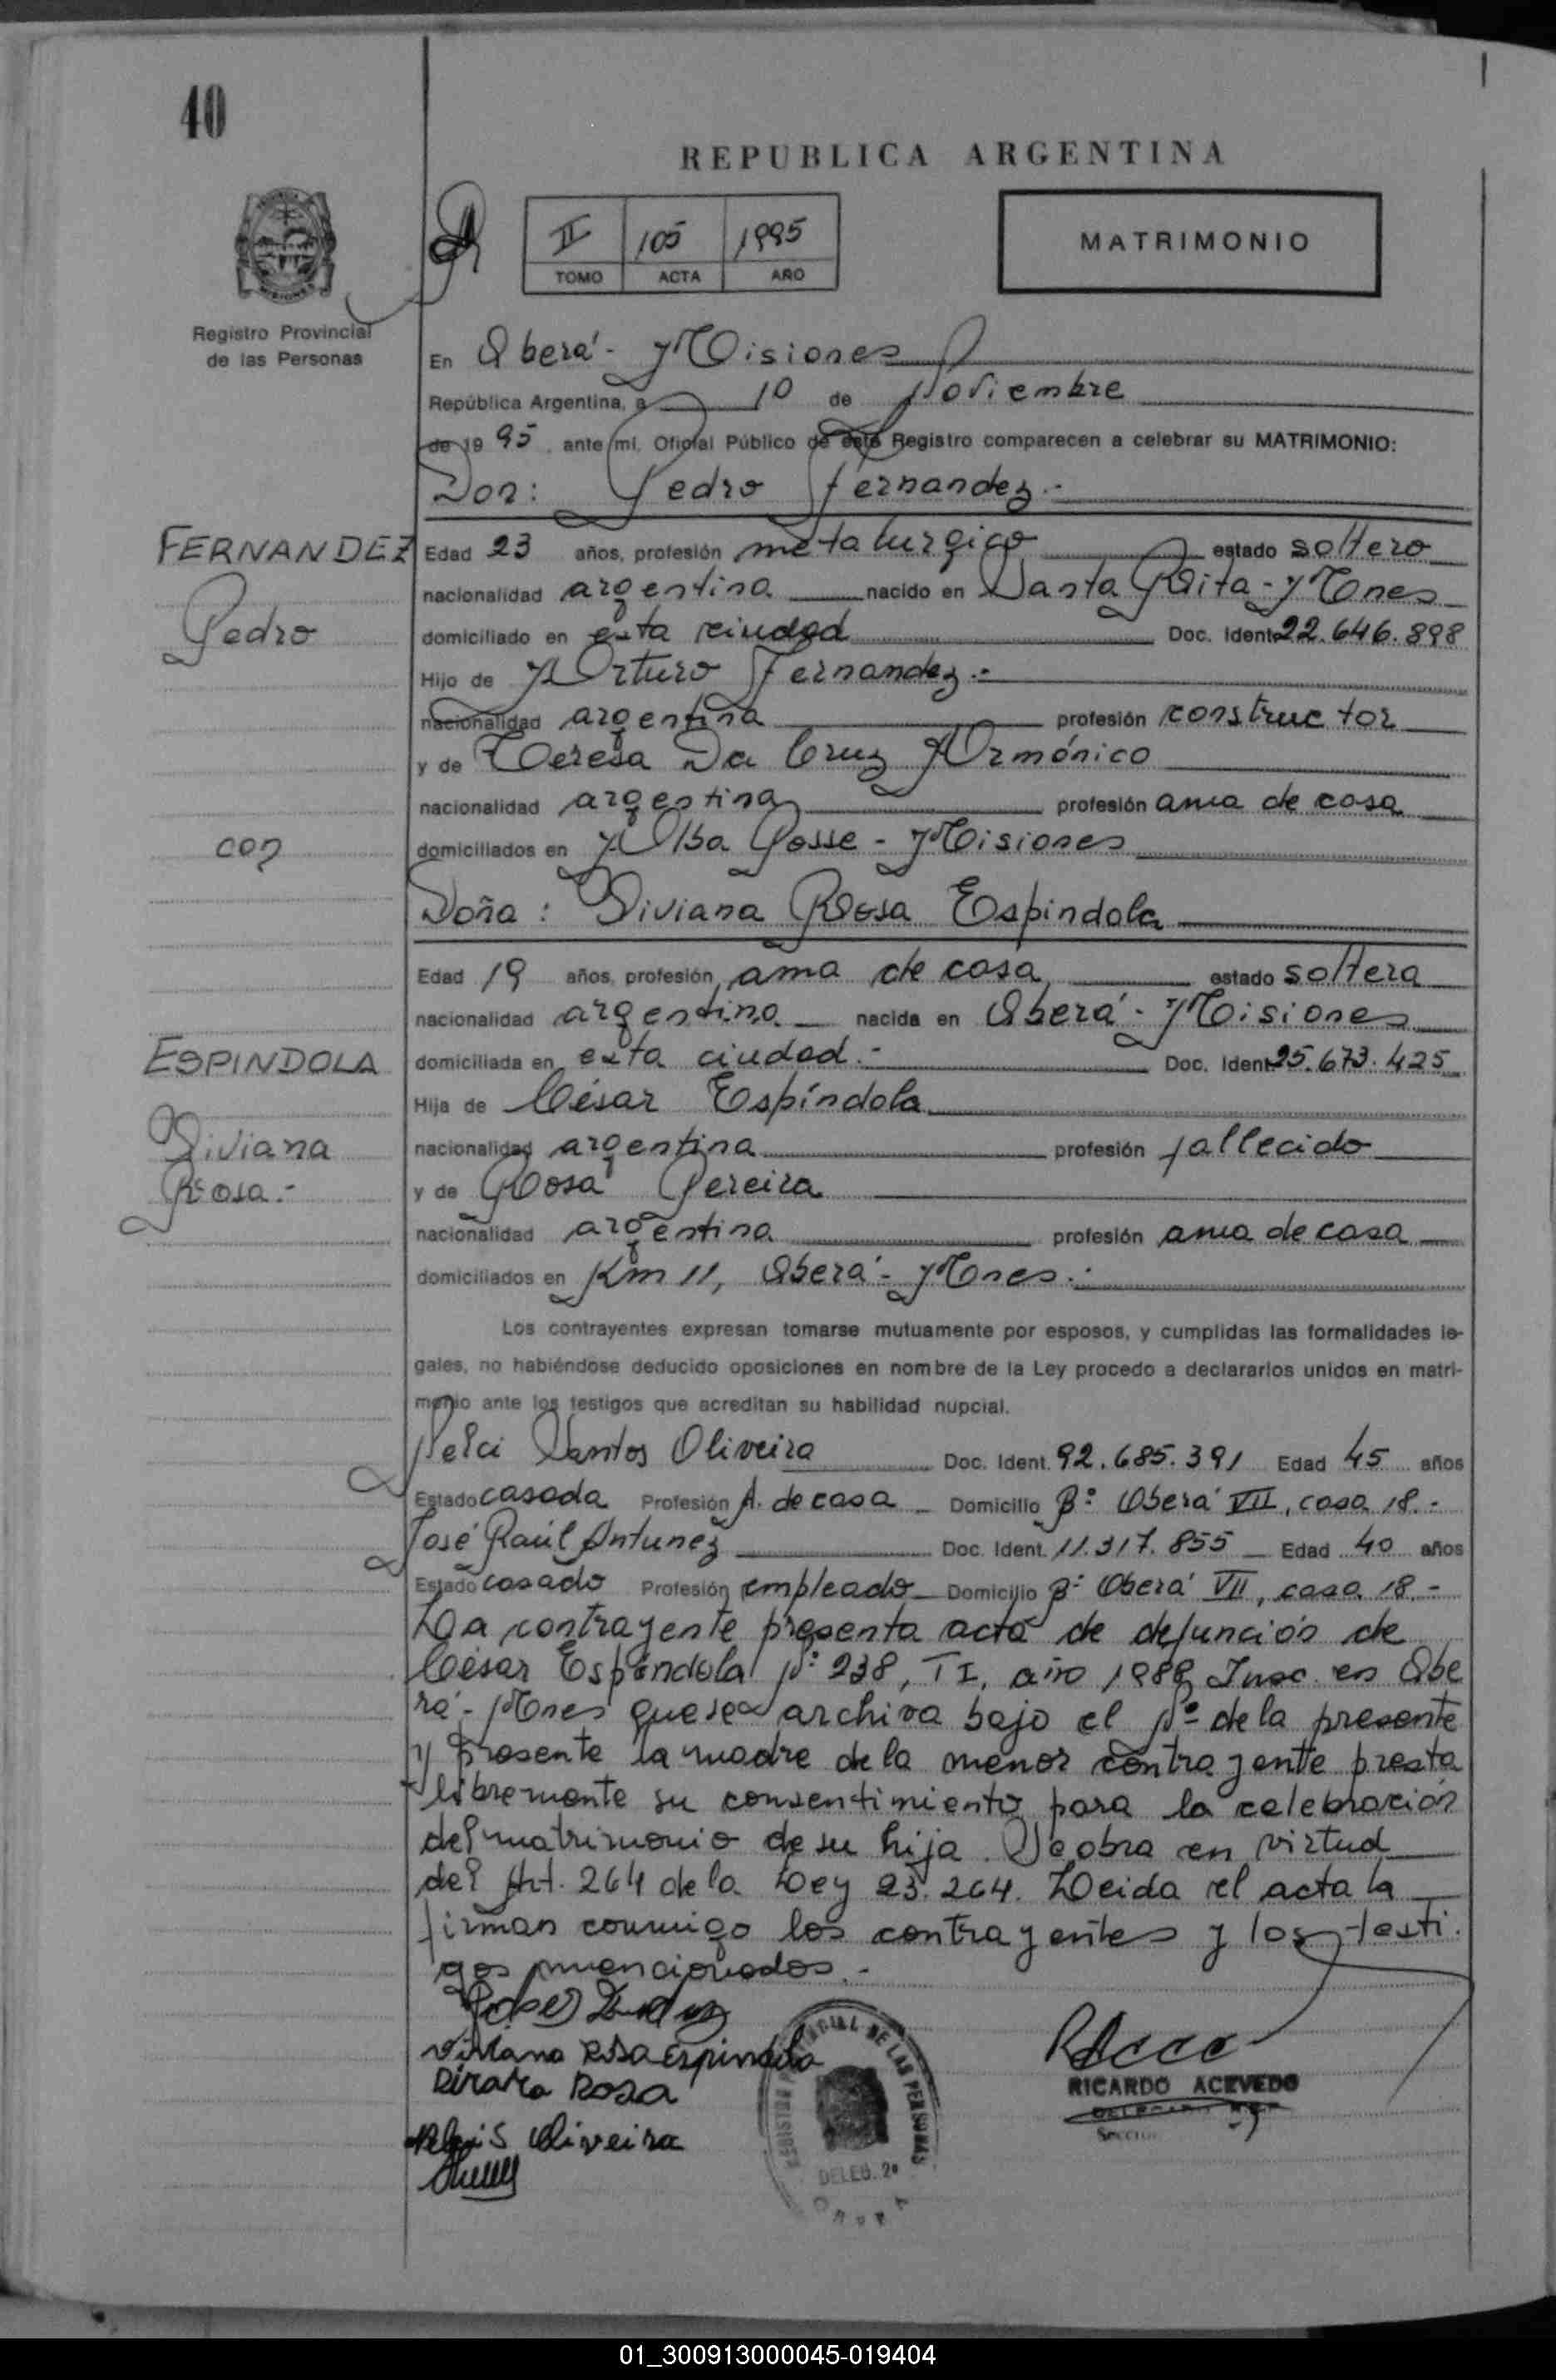 40
REPUBLICA ARGENTINA
II 105 1995
TOMO ACTA AÑO
MATRIMONIO
Registro Provincial
de las Personas
En Oberá - Misiones
República Argentina, a 10 de Noviembre
de 1995, ante mí, Oficial Público de este Registro comparecen a celebrar su MATRIMONIO:
Don: Pedro Fernandez.-
FERNANDEZ
Pedro
Edad 23 años, profesión metalurgico estado soltero
nacionalidad argentina nacido en Santa Rita - Mnes
domiciliado en esta ciudad Doc. Ident. 22.646.898
Hijo de Arturo Fernandez.-
nacionalidad argentina profesión constructor
y de Teresa Da Cruz Armónico
nacionalidad argentina profesión ama de casa
domiciliados en Alba Posse - Misiones
con
Doña: Viviana Rosa Espindola
Edad 19 años, profesión ama de casa estado soltera
nacionalidad argentina nacida en Oberá - Misiones
ESPINDOLA
Viviana
Rosa.-
domiciliada en esta ciudad.- Doc. Ident. 25.673.425
Hija de César Espíndola
nacionalidad argentina profesión fallecido
y de Rosa Pereira
nacionalidad argentina profesión ama de casa
domiciliados en Km 11, Oberá - Mnes.-
Los contrayentes expresan tomarse mutuamente por esposos, y cumplidas las formalidades le-
gales, no habiéndose deducido oposiciones en nombre de la Ley procedo a declararlos unidos en matri-
monio ante los testigos que acreditan su habilidad nupcial.
Nelci Santos Oliveira Doc. Ident. 92.685.391 Edad 45 años
Estado casada Profesión A. de casa Domicilio Bº Oberá VII, casa 18.-
José Raúl Antunez Doc. Ident. 11.317.855 Edad 40 años
Estado casado Profesión empleado Domicilio Bº Oberá VII, casa 18.-
La contrayente presenta acta de defunción de
César Espíndola Nº 238, T I, año 1989 Insc. en Obe
rá - Mnes que se archiva bajo el Nº de la presente
y presente la madre de la menor contrayente presta
libremente su consentimiento para la celebración
del matrimonio de su hija. Se obra en virtud
del Art. 264 de la Ley 23.264. Leida el acta la
firman conmigo los contrayentes y los testi
gos mencionados.-
Viviana Rosa Espindola
Rosa
Oliveira
REGISTRO PROVINCIAL DE LAS PERSONAS
DELEG. 2ª
OBERA
RICARDO ACEVEDO
01_300913000045-019404